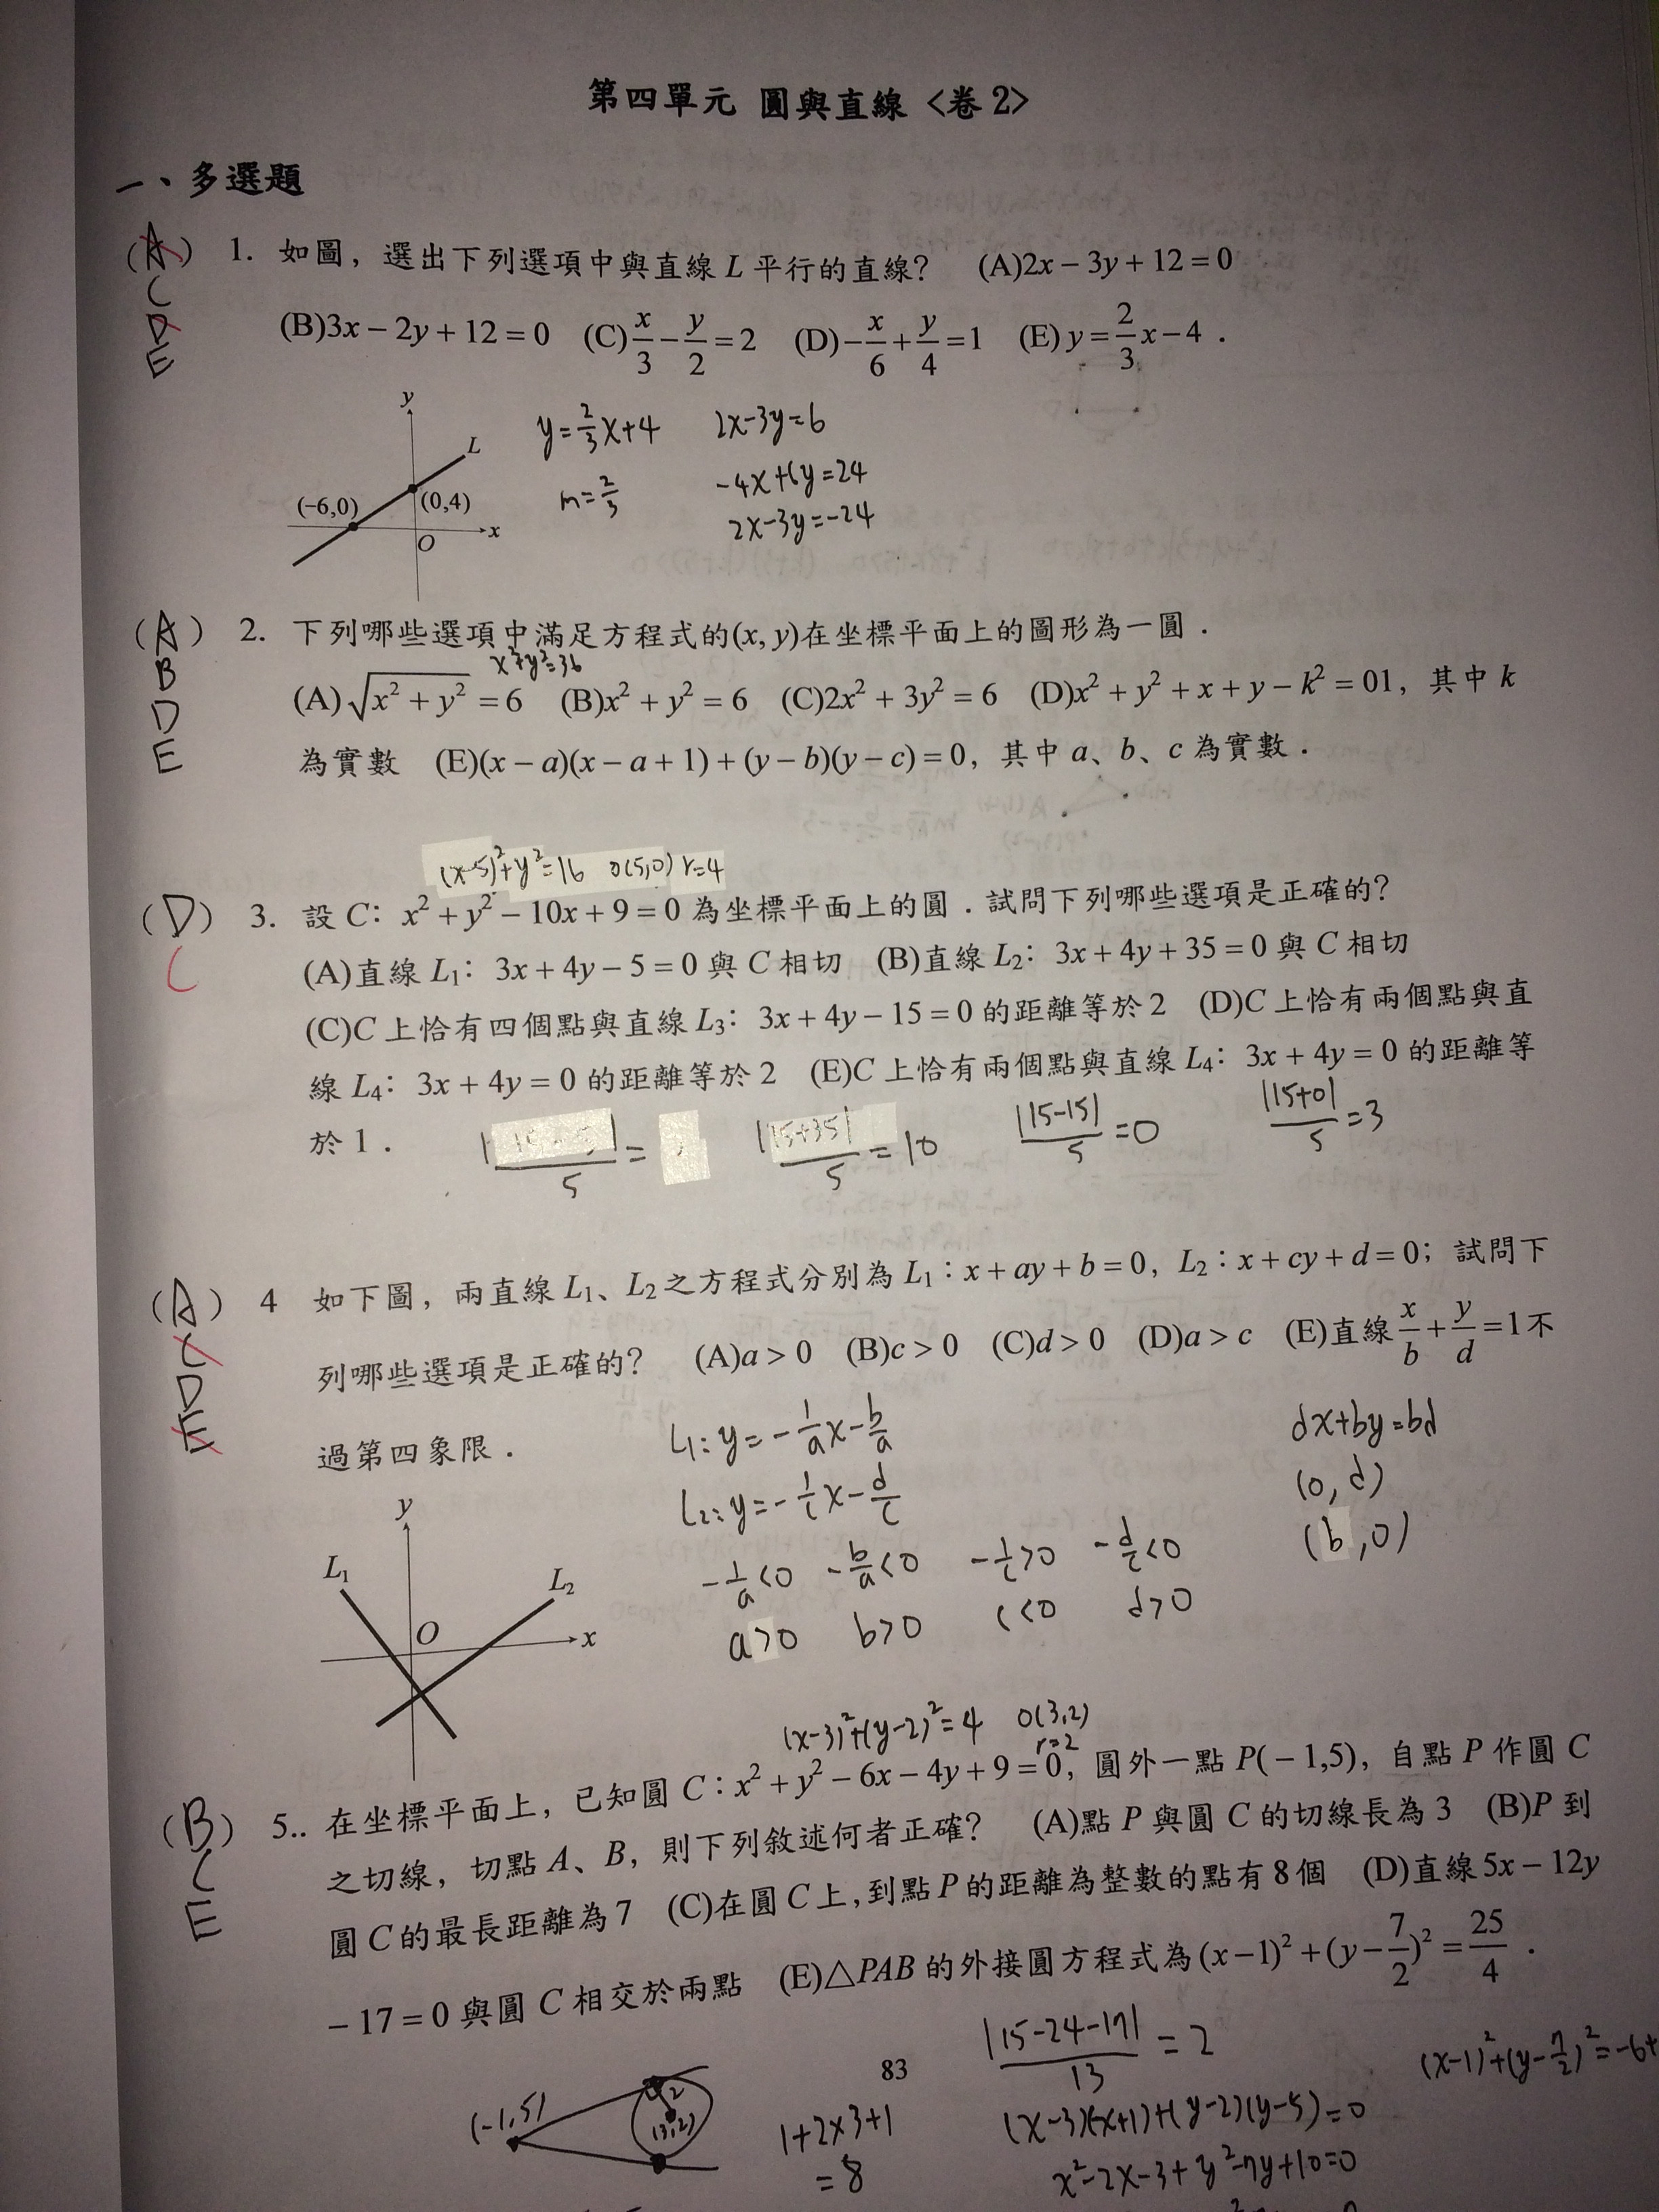 第四單元 圓與直線〈卷2〉
一、多選題
(A) 1. 如圖，選出下列選項中與直線 L 平行的直線？ (A)2x − 3y + 12 = 0
C
D
E
(B)3x − 2y + 12 = 0 (C)x/3 − y/2 = 2 (D)−x/6 + y/4 = 1 (E) y = 2/3 x − 4．
y
L
(-6,0)
(0,4)
O
x
y=2/3x+4
m=2/3
2x-3y=6
-4x+6y=24
2x-3y=-24
(A) 2. 下列哪些選項中滿足方程式的(x, y)在坐標平面上的圖形為一圓．
B
D
E
x²+y²=36
(A)√(x² + y²) = 6 (B)x² + y² = 6 (C)2x² + 3y² = 6 (D)x² + y² + x + y − k² = 01，其中 k
為實數 (E)(x − a)(x − a + 1) + (y − b)(y − c) = 0，其中 a、b、c 為實數．
(x-5)²+y²=16 O(5,0) r=4
(D) 3. 設 C：x² + y² − 10x + 9 = 0 為坐標平面上的圓．試問下列哪些選項是正確的？
C
(A)直線 L₁：3x + 4y − 5 = 0 與 C 相切 (B)直線 L₂：3x + 4y + 35 = 0 與 C 相切
(C)C 上恰有四個點與直線 L₃：3x + 4y − 15 = 0 的距離等於 2 (D)C 上恰有兩個點與直
線 L₄：3x + 4y = 0 的距離等於 2 (E)C 上恰有兩個點與直線 L₄：3x + 4y = 0 的距離等
於 1．
|15+35|/5 = 10
|15-15|/5 = 0
|15+0|/5 = 3
(A) 4 如下圖，兩直線 L₁、L₂ 之方程式分別為 L₁：x + ay + b = 0，L₂：x + cy + d = 0；試問下
C
D
E
列哪些選項是正確的？ (A)a > 0 (B)c > 0 (C)d > 0 (D)a > c (E)直線 x/b + y/d = 1 不
過第四象限．
L₁: y=-1/a x-b/a
L₂: y=-1/c x-d/c
-1/a<0 -b/a<0 -1/c>0 -d/c<0
a>0 b>0 c<0 d>0
dx+by=bd
(0, d)
(b, 0)
y
L₁
L₂
O
x
(x-3)²+(y-2)²=4 O(3,2)
r=2
(B) 5.. 在坐標平面上，已知圓 C：x² + y² − 6x − 4y + 9 = 0，圓外一點 P(− 1,5)，自點 P 作圓 C
C
E
之切線，切點 A、B，則下列敘述何者正確？ (A)點 P 與圓 C 的切線長為 3 (B)P 到
圓 C 的最長距離為 7 (C)在圓 C 上，到點 P 的距離為整數的點有 8 個 (D)直線 5x − 12y
− 17 = 0 與圓 C 相交於兩點 (E)△PAB 的外接圓方程式為 (x − 1)² + (y − 7/2)² = 25/4．
|15-24-17|/13 = 2
(x-1)²+(y-7/2)²=-6+
83
(-1,5)
2
(3,2)
1+2×3+1
=8
(x-3)(x+1)+(y-2)(y-5)=0
x²-2x-3+y²-7y+10=0